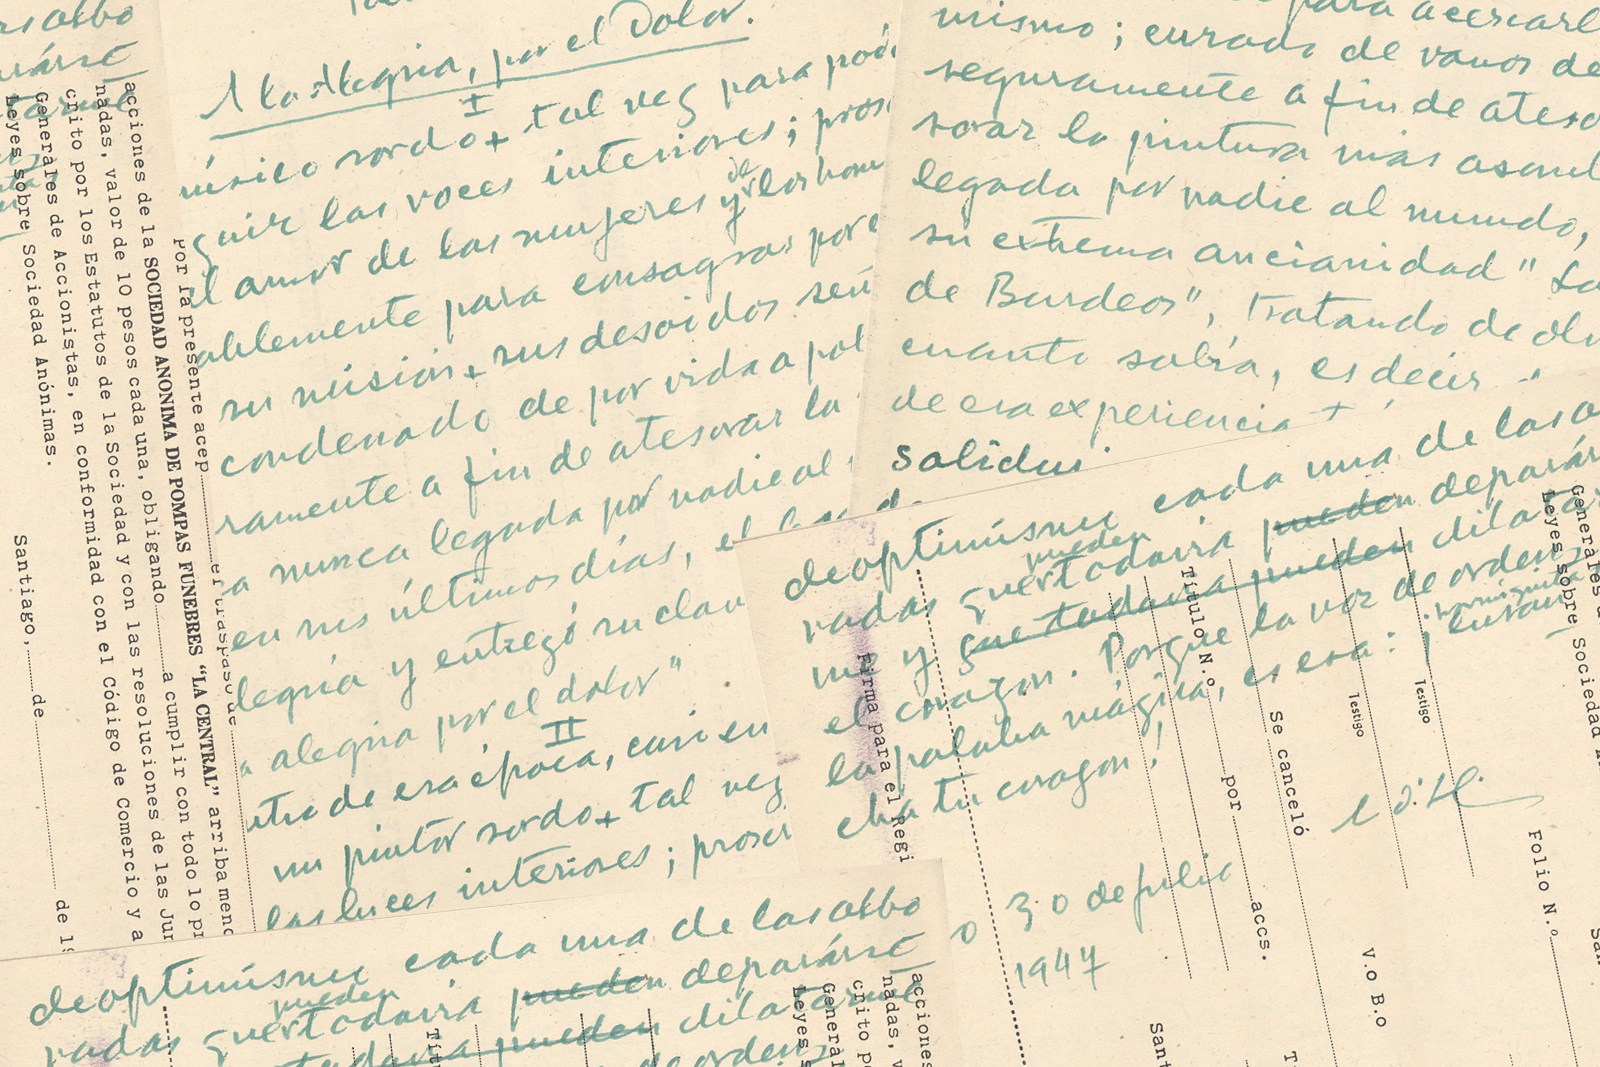 A la Alegria, por el Dolor.
I
músico sordo + tal vez para pod
guir las voces interiores; pros
el amor de las mujeres y de los hom
ablemente para consagrar por e
su misión + sus desoidos
condenado de por vida a
ramente a fin de atesorar la
a nunca legada por nadie al
en sus últimos días, el
legria y entregó su clav
a alegria por el dolor"
II
tro de esa época, casi en
un pintor sordo + tal vez
las luces interiores; prosc
para acercarl
mismo; curado de vanos de
seguramente a fin de ateso
sorar la pintura más asomb
legada por nadie al mundo,
su extrema ancianidad " La
de Burdeos", tratando de olv
cuanto sabía, es decir
de esa experiencia +
salidus
de optimismo cada una de las a
pueden
radas que todavia pueden deparár
me y que todavia pueden dilatar
el corazon. Porque la voz de orden,
la palabra mágica, es esa:
cha tu corazon!
30 de julio
1947
de optimismo cada una de las albo
pueden
radas que todavia pueden depararse
todavia pueden dilatarme
de orden,
por la presente acep
el traspaso de
acciones de la SOCIEDAD ANONIMA DE POMPAS FUNEBRES "LA CENTRAL" arriba menc
nadas, valor de 10 pesos cada una, obligando a cumplir con todo lo pr
crito por los Estatutos de la Sociedad y con las resoluciones de las Jun
Generales de Accionistas, en conformidad con el Código de Comercio y a
Leyes sobre Sociedad Anónimas.
Santiago, de de 19
Firma para el Regi
Título N.º por accs.
Se canceló
Testigo
Testigo
Folio N.º
V.o B.o
Sant
Generales d
Leyes sobre Sociedad
acciones
nadas, v
crito po
General
Leyes s